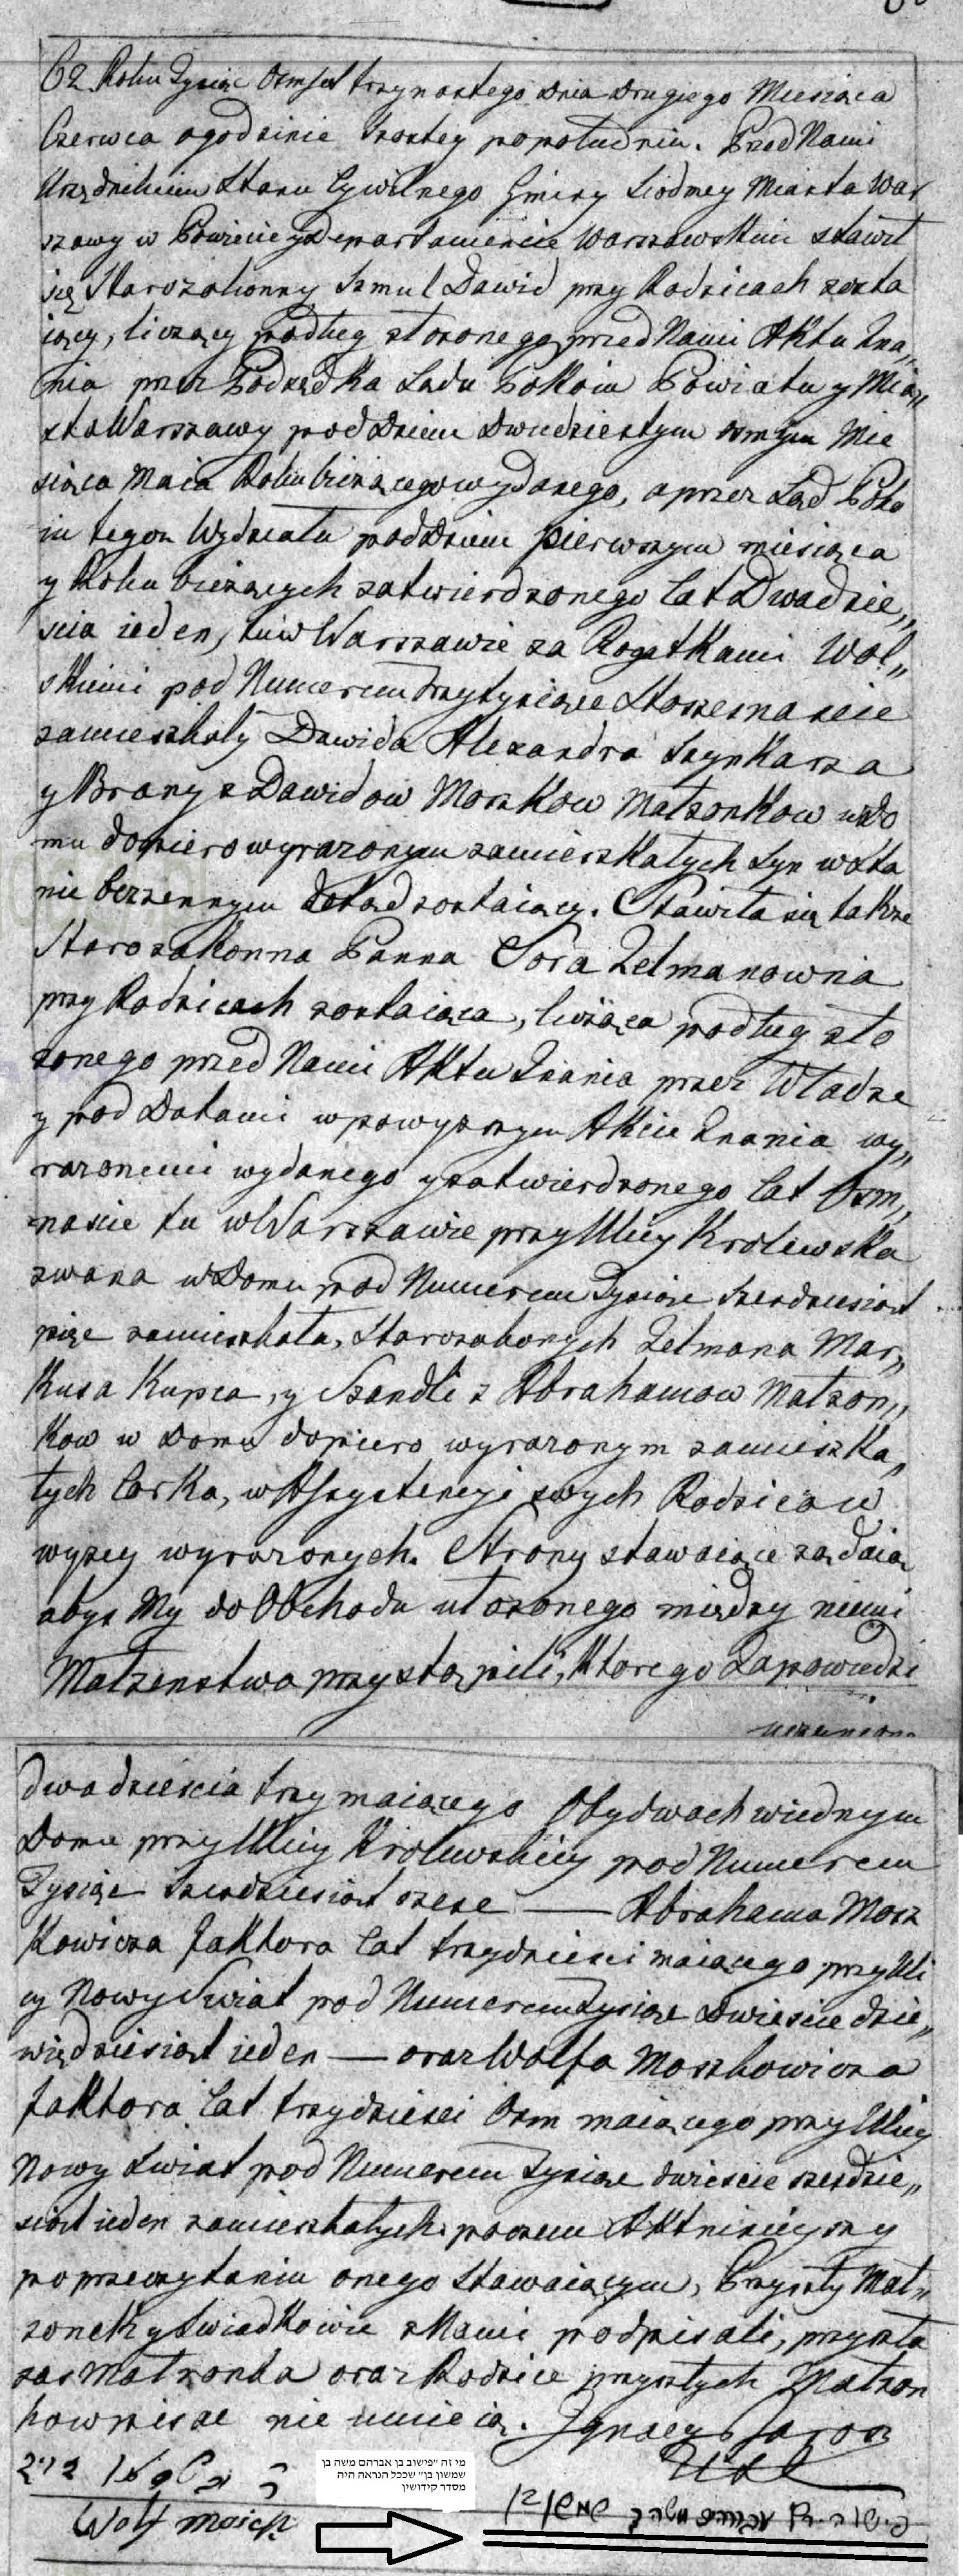 62. Roku Tysiąc Osmset trzynastego dnia drugiego Miesiąca
Czerwca o godzinie szostey popołudniu. Przed Nami
Urzędnikiem Stanu Cywilnego Gminy Siodmey Miasta War
szawy w Powiecie y Departamencie Warszawskim stawił
się Starozakonny Szmul Dawid przy Rodzicach zosta
iący, liczący podług złozonego przed Nami Aktu Zna„
nia przez Podsędka Sądu Pokoiu Powiatu y Mia„
sta Warszawy pod Dniem Dwudziestym osmym Mie
siąca Maia Roku bieżącego wydanego, a przez Sąd Poko
iu tegoz Wydziału pod Dniem pierwszym miesiąca
y Roku bieżących zatwierdzonego lat Dwadzie„
scia ieden, tu w Warszawie za Rogatkami Wol„
skiemi pod Numerem trzytysiące Stoszesnascie
zamieszkały Dawida Alexandra Szynkarza
y Brany z Dawidow Moszkow Małzonkow w do
mu dopiero wyrazonym zamieszkałych Syn w sta
nie bezzennym dotąd zostaiący. Stawiła się takze
Starozakonna Panna Sora Zelmanowna
przy Rodzicach zostaiąca, licząca podług zło
zonego przed Nami Aktu Znania przez Władze
y pod Datami w powyzszym Akcie Znania wy„
razonemi wydanego y zatwierdzonego lat Osm„
nascie tu w Warszawie przy Ulicy Krolewska
zwana w Domu pod Numerem Tysiąc szesdziesiąt
pięc zamieszkała, Starozakonych Zelmana Mar„
kusa Kupca, y Szandli z Abrahamow Małzon„
kow w Domu dopiero wyrazonym zamieszka„
łych Corka, w Assystencyi swych Rodzicow
wyzey wyrazonych. Strony stawaiące ządaią
abys My do Obchodu ułozonego między niemi
Małzenstwa przystąpili, Ktorego Zapowiedzi
uczynione
dwadziescia trzy maiącego Obydwoch w iednym
Domu przy Ulicy Krolewskiey pod Numerem
Tysiąc szesdziesiąt szesc — Abrahama Mosz
kowicza faktora lat trzydziesci maiącego przy Uli
cy Nowy Swiat pod Numerem Tysiąc Dwiescie dzie„
więdziesiąt ieden — oraz Wolfa Moszkowicza
faktora lat trzydziesci Osm maiącego przy Ulicy
Nowy Swiat pod Numerem Tysiąc dwiescie szesdzie„
siąt ieden zamieszkałych poczem Akt ninieyszy
po przeczytaniu onego Stawaiącym, Przyszły Mał„
zonek y Swiadkowie z Nami podpisali, przyszła
zas Małzonka oraz Rodzice przyszłych Małzon
kow pisac nie umieią. Ignacy
Wolf
מי זה "פישוב בן אברהם משה בן
שמשון בן" שככל הנראה היה
מסדר קידושין